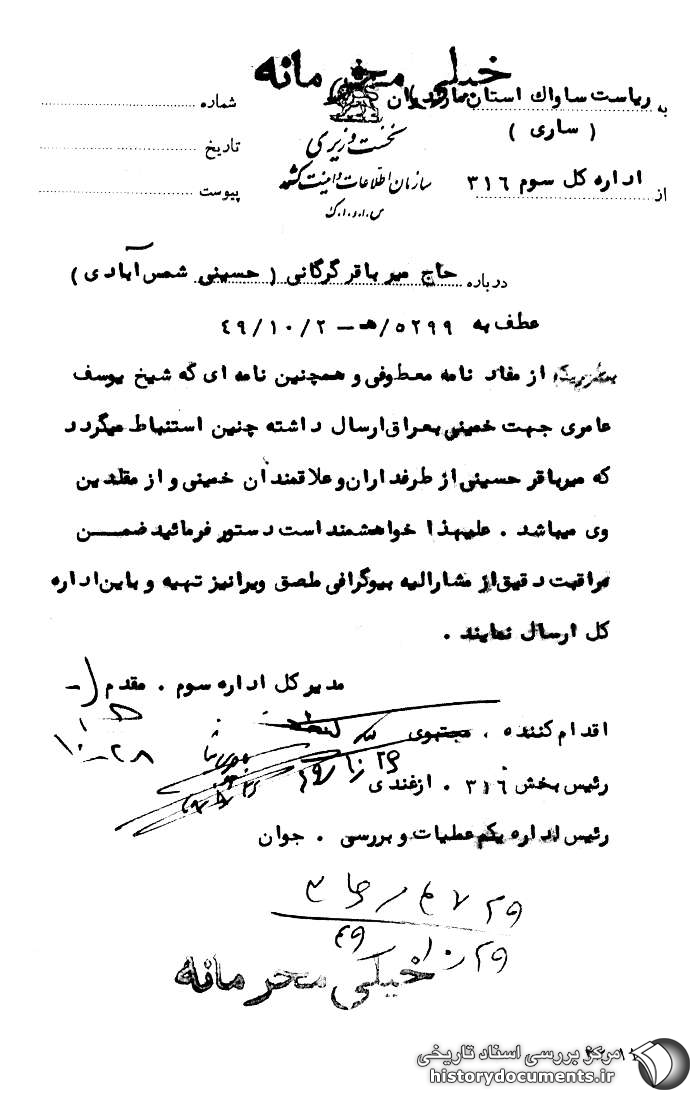 خیلی محرمانه
به ریاست ساواك استان مازندران
( ساری )
از اداره کل سوم ۳۱۶
نخست وزیری
سازمان اطلاعات و امنیت کشور
س.ا.و.ا.ک
شماره
تاریخ
پیوست
درباره حاج میر باقر گرگانی ( حسینی شمس آبادی )
عطف به ۵۲۹۹/هـ – ۴۹/۱۰/۲
از مفاد نامه معطوفی و همچنین نامه ای که شیخ یوسف
عامری جهت خمینی بعراق ارسال داشته چنین استنباط میگردد
که میرباقر حسینی از طرفداران و علاقمندان خمینی و از مقلدین
وی میباشد . علیهذا خواهشمند است دستور فرمائید ضمن
مراقبت دقیق از مشارالیه بیوگرافی ملصق ویرانیز تهیه و باین اداره
کل ارسال نمایند .
مدیر کل اداره سوم . مقدم
۲۸-۱۰
اقدام کننده .
رئیس بخش ۳۱۶ . ازغندی
رئیس اداره یکم عملیات و بررسی . جوان
خیلی محرمانه
مرکز بررسی اسناد تاریخی
historydocuments.ir